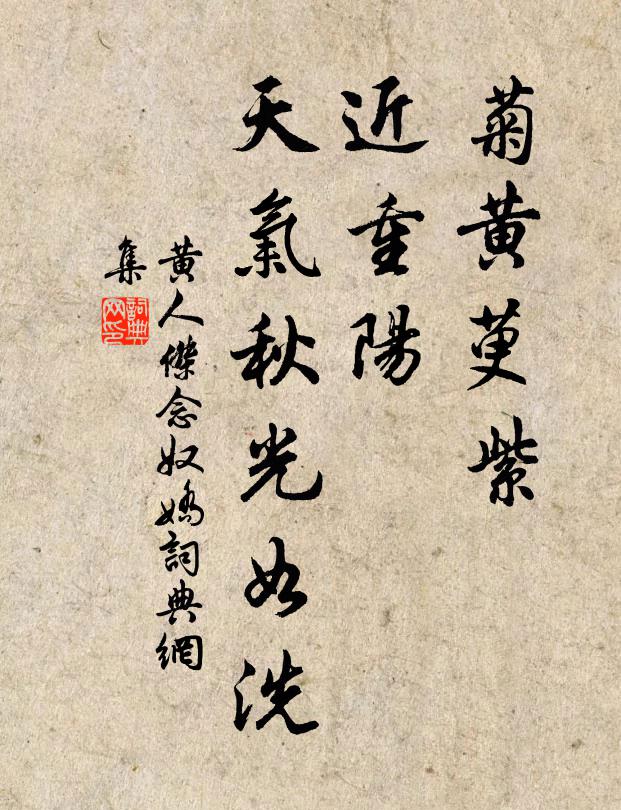 菊黄萸紫
近重陽
天氣秋光如洗
黄人傑念奴嬌詞典網
集
詞典
网印